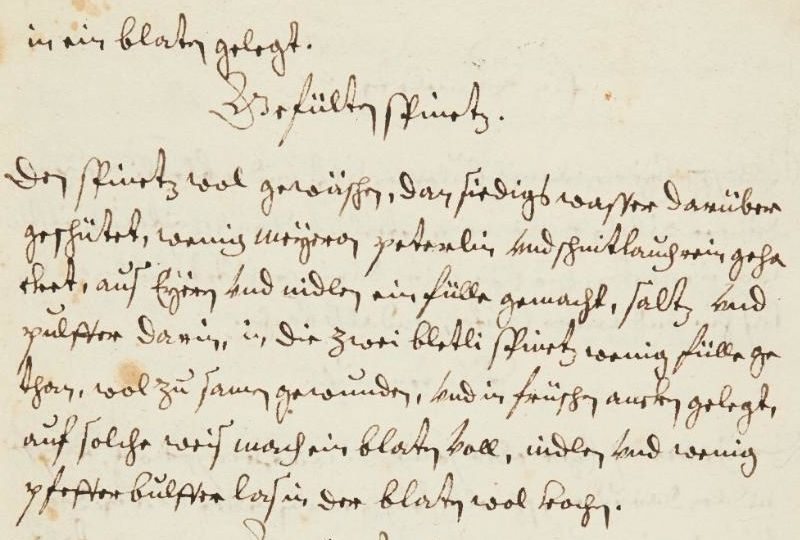 in ein blaten gelegt.
Gefülten spinetz.
Den spinetz wol gewäschen, dan siedigs wasser darüber
geschütet, wenig meÿeron peterlin vnd schnitlauch rein geha
cket, aus Eÿeren vnd nidlen ein fülle gemacht, saltz vnd
pulffer darin, in die zwei bletli spinetz wenig fülle ge
than, wol zu samen gewunden, vnd in früschen ancken gelegt,
auf solche weis mach ein blaten voll, nidlen vnd wenig
pfefferbulffer las in der blaten wol kochen.